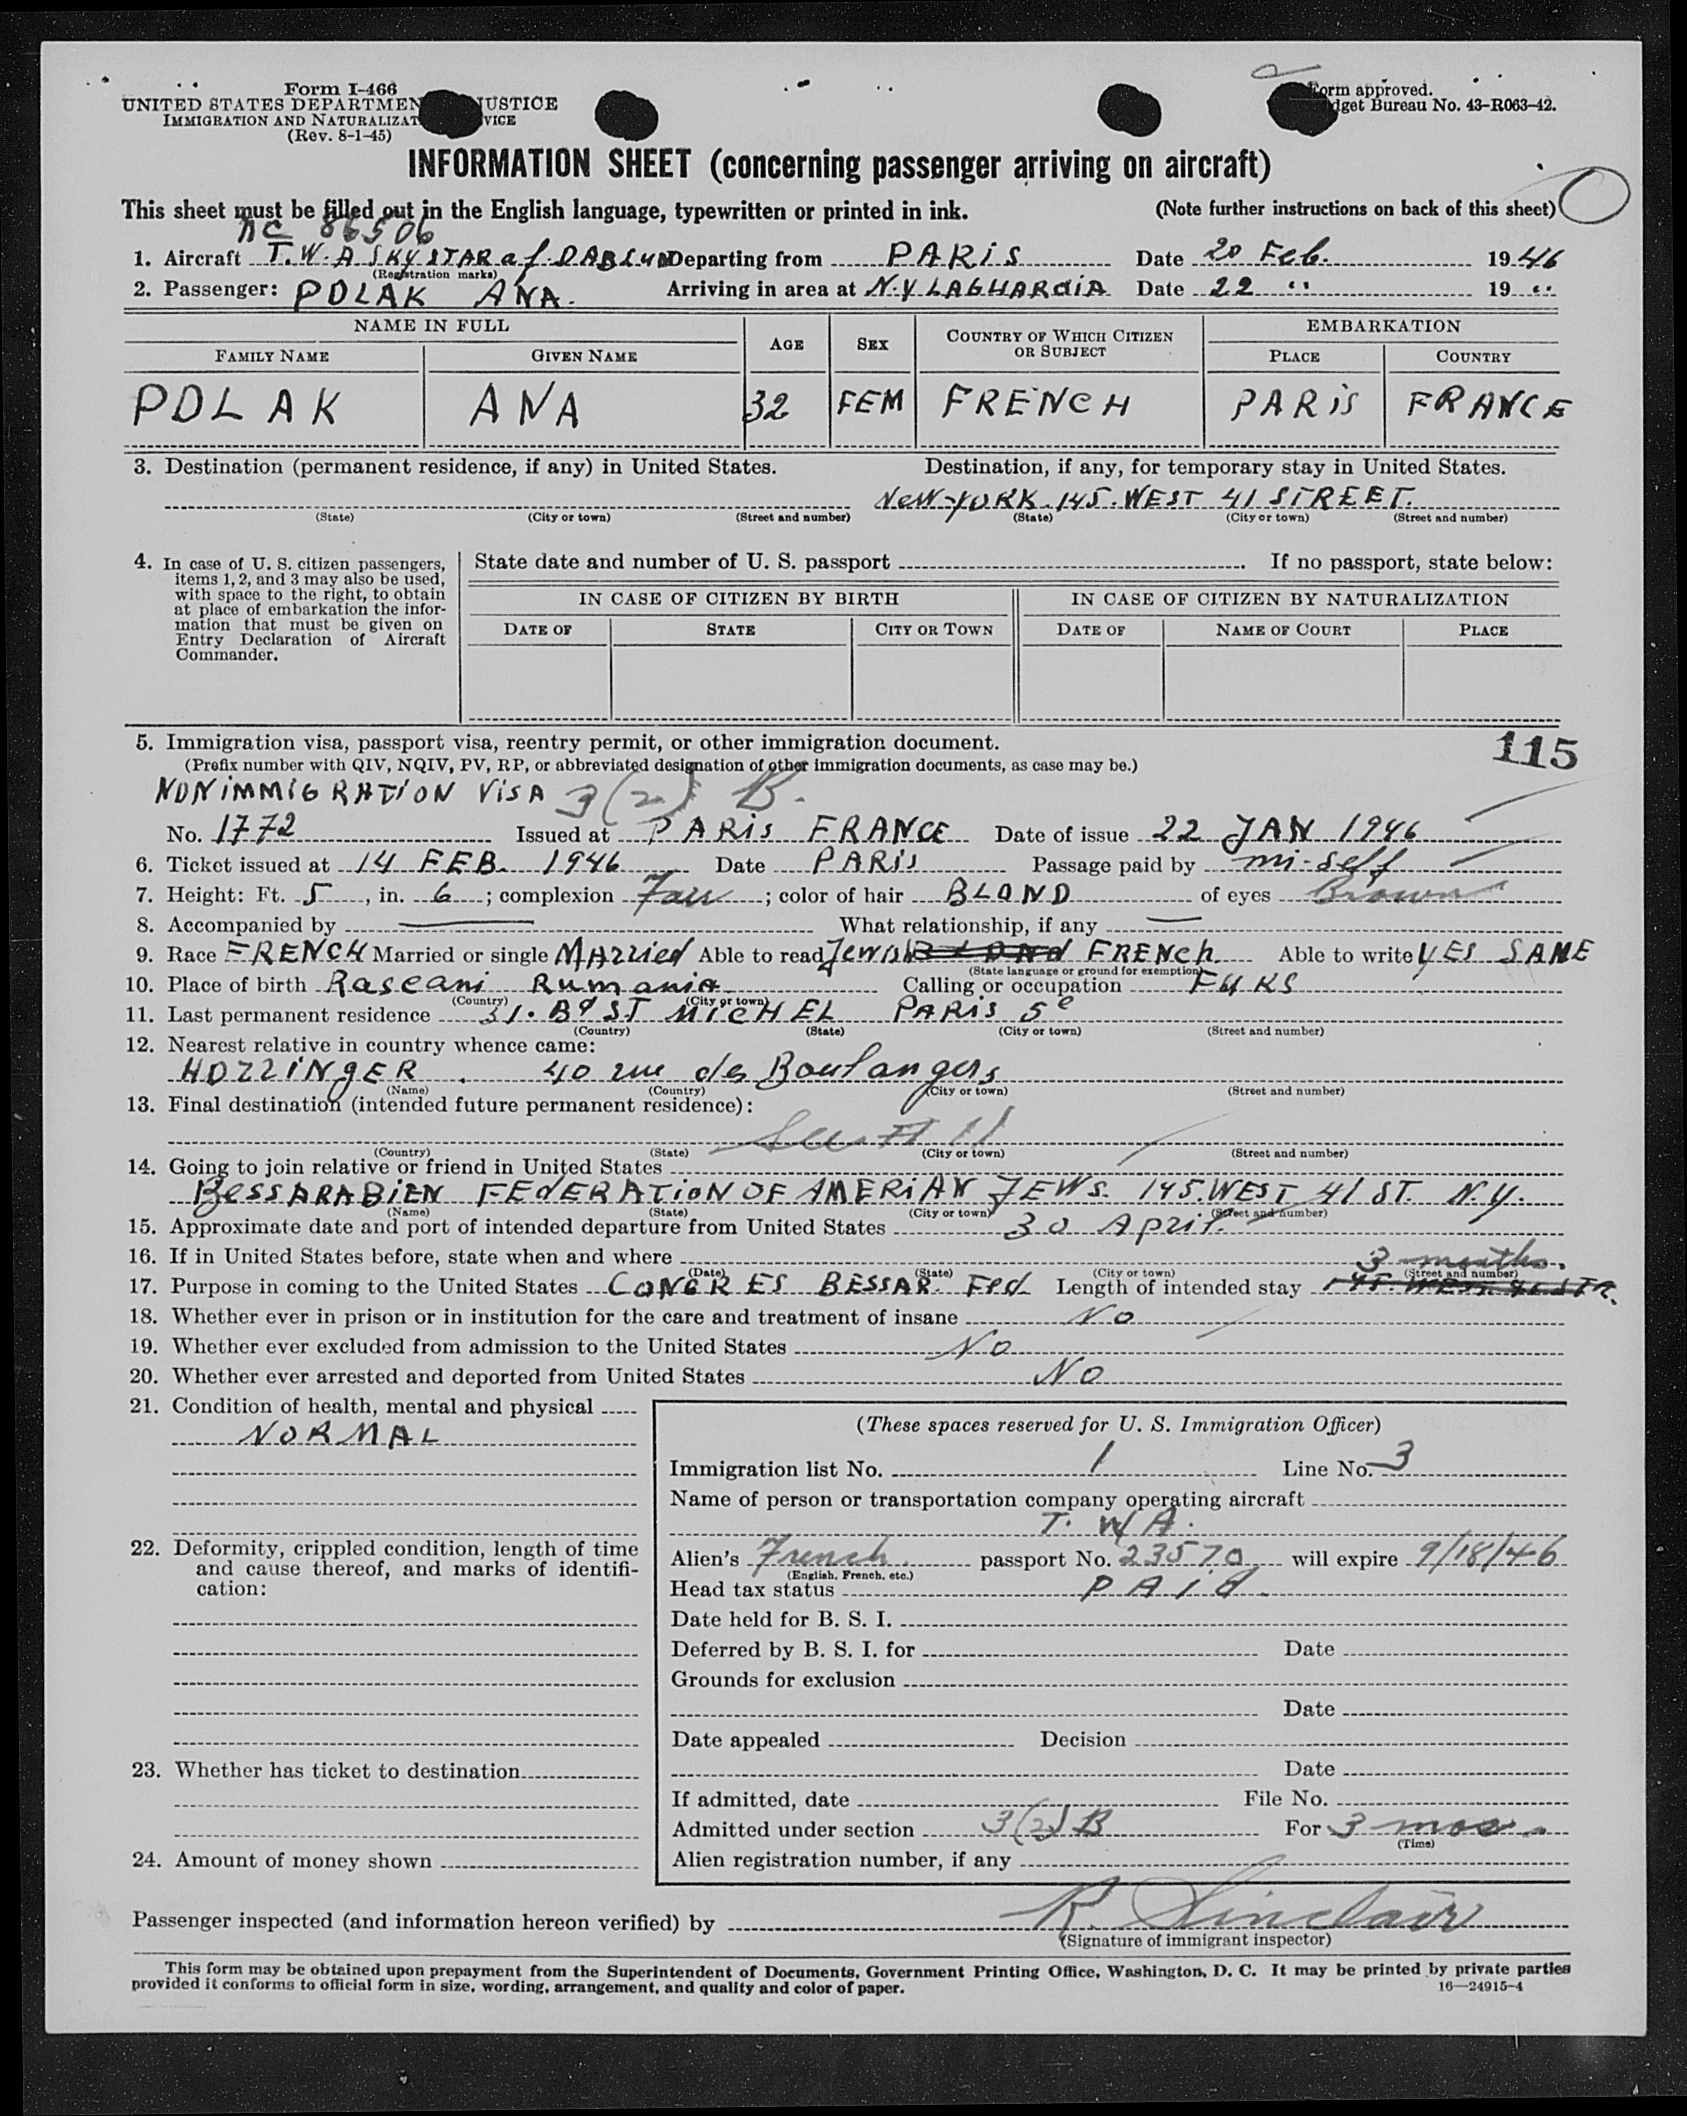 Form I-466
UNITED STATES DEPARTMEN USTICE
IMMIGRATION AND NATURALIZAT VICE
(Rev. 8-1-45)
Form approved.
dget Bureau No. 43-R063-42.
INFORMATION SHEET (concerning passenger arriving on aircraft)
This sheet must be filled out in the English language, typewritten or printed in ink. (Note further instructions on back of this sheet)
NC 86506
1. Aircraft T.W.A SKYSTAR of DABLUN Departing from PARIS Date 20 Feb. 1946
(Registration marks)
2. Passenger: POLAK ANA. Arriving in area at N.Y LAGUARdIA Date 22 " 19 "
NAME IN FULL
FAMILY NAME GIVEN NAME AGE SEX COUNTRY OF WHICH CITIZEN OR SUBJECT EMBARKATION PLACE COUNTRY
POLAK ANA 32 FEM FRENCH PARIS FRANCE
3. Destination (permanent residence, if any) in United States. Destination, if any, for temporary stay in United States.
NeW-YORK.145.WEST 41 STREET.
(State) (City or town) (Street and number) (State) (City or town) (Street and number)
4. In case of U. S. citizen passengers, items 1, 2, and 3 may also be used, with space to the right, to obtain at place of embarkation the information that must be given on Entry Declaration of Aircraft Commander.
State date and number of U. S. passport . If no passport, state below:
IN CASE OF CITIZEN BY BIRTH IN CASE OF CITIZEN BY NATURALIZATION
DATE OF STATE CITY OR TOWN DATE OF NAME OF COURT PLACE
5. Immigration visa, passport visa, reentry permit, or other immigration document. 115
(Prefix number with QIV, NQIV, PV, RP, or abbreviated designation of other immigration documents, as case may be.)
NONIMMIGRATION VISA 3(2) B.
No. 1772 Issued at PARIS FRANCE Date of issue 22 JAN 1946
6. Ticket issued at 14 FEB. 1946 Date PARIS Passage paid by mi-self
7. Height: Ft. 5, in. 6; complexion Fair; color of hair BLOND of eyes Brown
8. Accompanied by What relationship, if any
9. Race FRENCH Married or single MARRied Able to read Jewish FRENCh Able to write YES SAME
(State language or ground for exemption)
10. Place of birth Rascani Rumania Calling or occupation FURS
(Country) (City or town)
11. Last permanent residence 31. Bd ST MICHEL PARIS 5e
(Country) (State) (City or town) (Street and number)
12. Nearest relative in country whence came:
HOZZINgER. 40 rue des Boulangers
(Name) (Country) (City or town) (Street and number)
13. Final destination (intended future permanent residence):
See # 11
(Country) (State) (City or town) (Street and number)
14. Going to join relative or friend in United States
BESSARABIEN FEdERATION OF AMERIAN JEWS. 145.WEST 41 ST. N.Y.
(Name) (State) (City or town) (Street and number)
15. Approximate date and port of intended departure from United States 30 April.
16. If in United States before, state when and where
(Date) (State) (City or town) (Street and number)
3 months.
17. Purpose in coming to the United States CONGRES BESSAR. Fed. Length of intended stay 145. WEST 41 STR.
18. Whether ever in prison or in institution for the care and treatment of insane NO
19. Whether ever excluded from admission to the United States NO
20. Whether ever arrested and deported from United States NO
21. Condition of health, mental and physical
NORMAL
22. Deformity, crippled condition, length of time and cause thereof, and marks of identification:
23. Whether has ticket to destination
24. Amount of money shown
(These spaces reserved for U. S. Immigration Officer)
Immigration list No. 1 Line No. 3
Name of person or transportation company operating aircraft
T. W A.
Alien's French passport No. 23570 will expire 9/18/46
(English, French, etc.)
Head tax status PAId.
Date held for B. S. I.
Deferred by B. S. I. for Date
Grounds for exclusion
Date
Date appealed Decision
Date
If admitted, date File No.
Admitted under section 3(2) B For 3 mos.
(Time)
Alien registration number, if any
Passenger inspected (and information hereon verified) by R. Sinclair
(Signature of immigrant inspector)
This form may be obtained upon prepayment from the Superintendent of Documents, Government Printing Office, Washington, D. C. It may be printed by private parties
provided it conforms to official form in size, wording, arrangement, and quality and color of paper. 16—24915-4